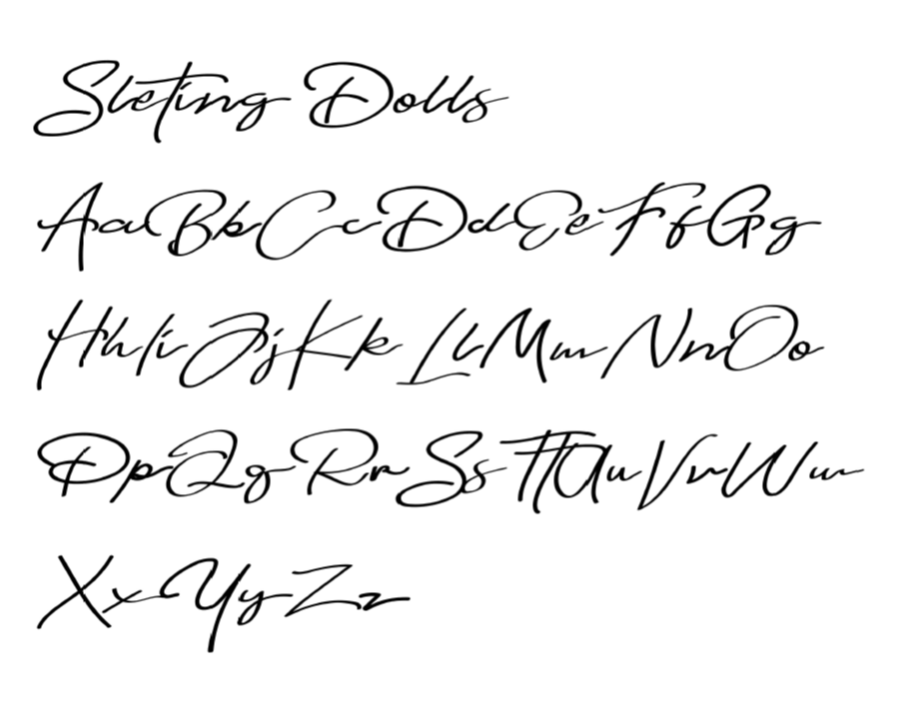 Sleting Dolls
AaBbCcDdEeFfGg
HhIiJjKkLlMmNnOo
PpQqRrSsTtUuVvWw
XxYyZz